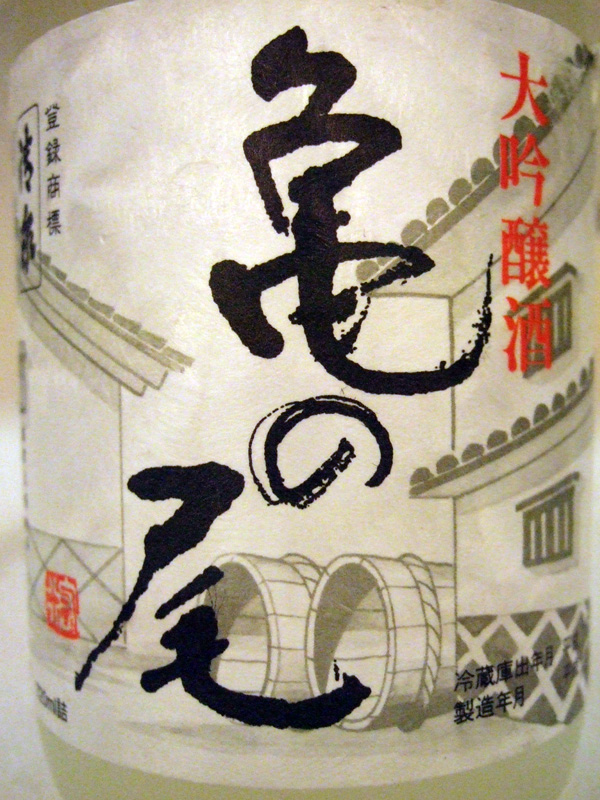 大吟醸酒
亀の尾
登録商標
冷蔵庫出年月
製造年月
ml詰